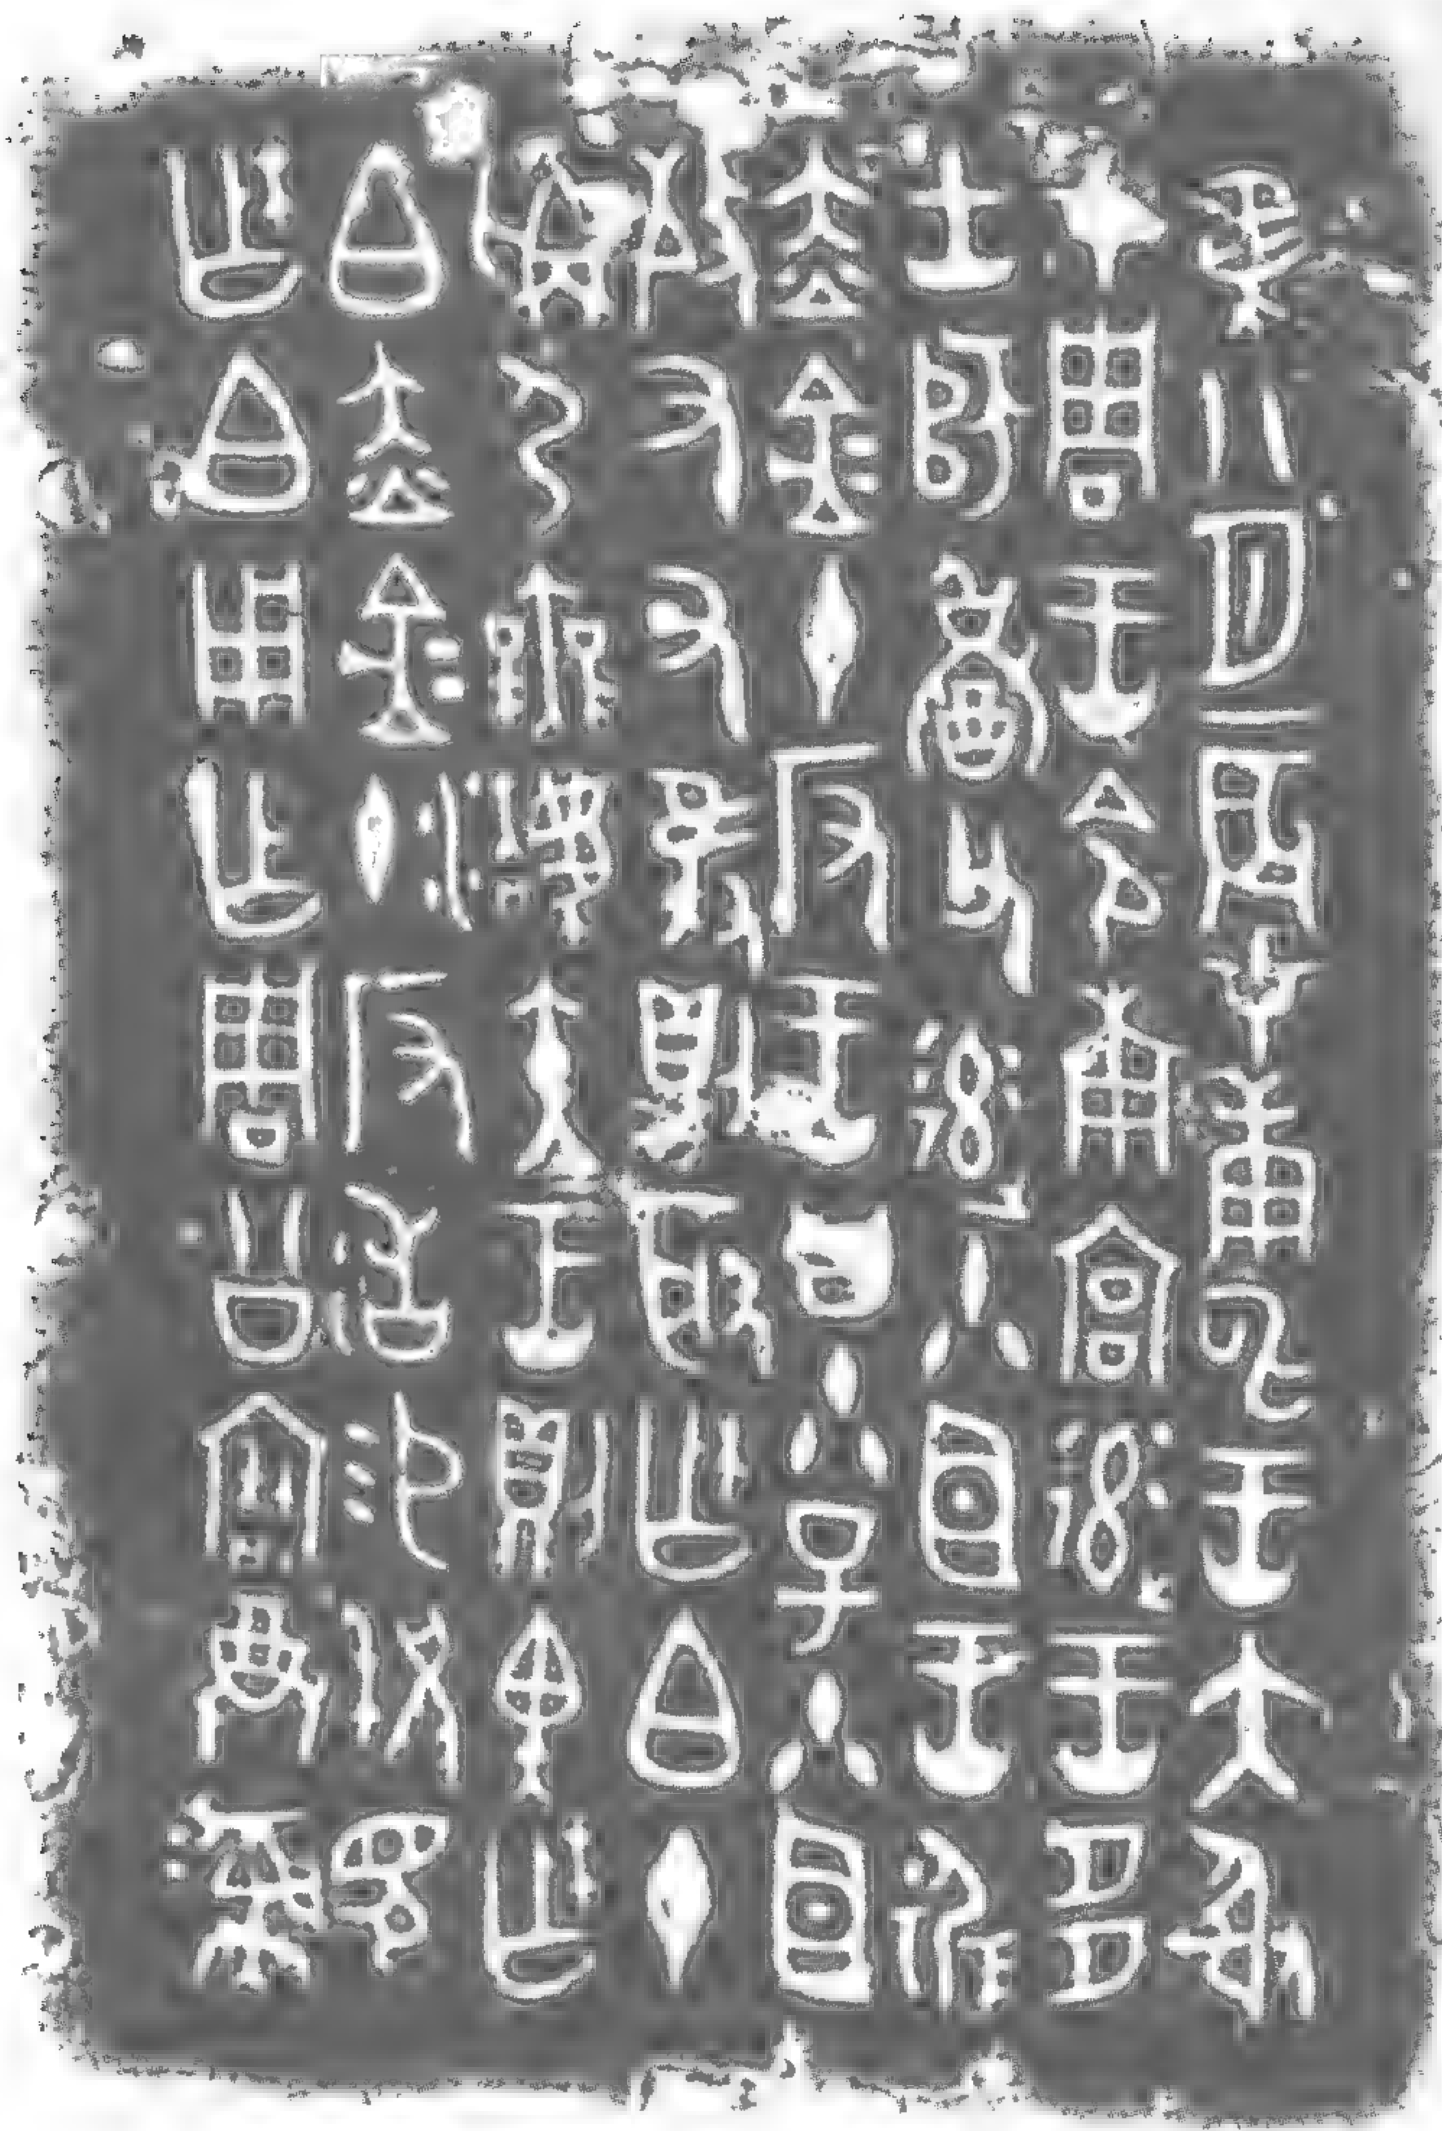 隹八月辰才庚申王大射
才周王令南宮率王多
士師父率小臣王遟
赤金十反王曰小子小臣
敬又又隻則取柞白十
爯弓無灋矢王則畀柞
白赤金十反易祝見
柞白用乍周公寶尊彝